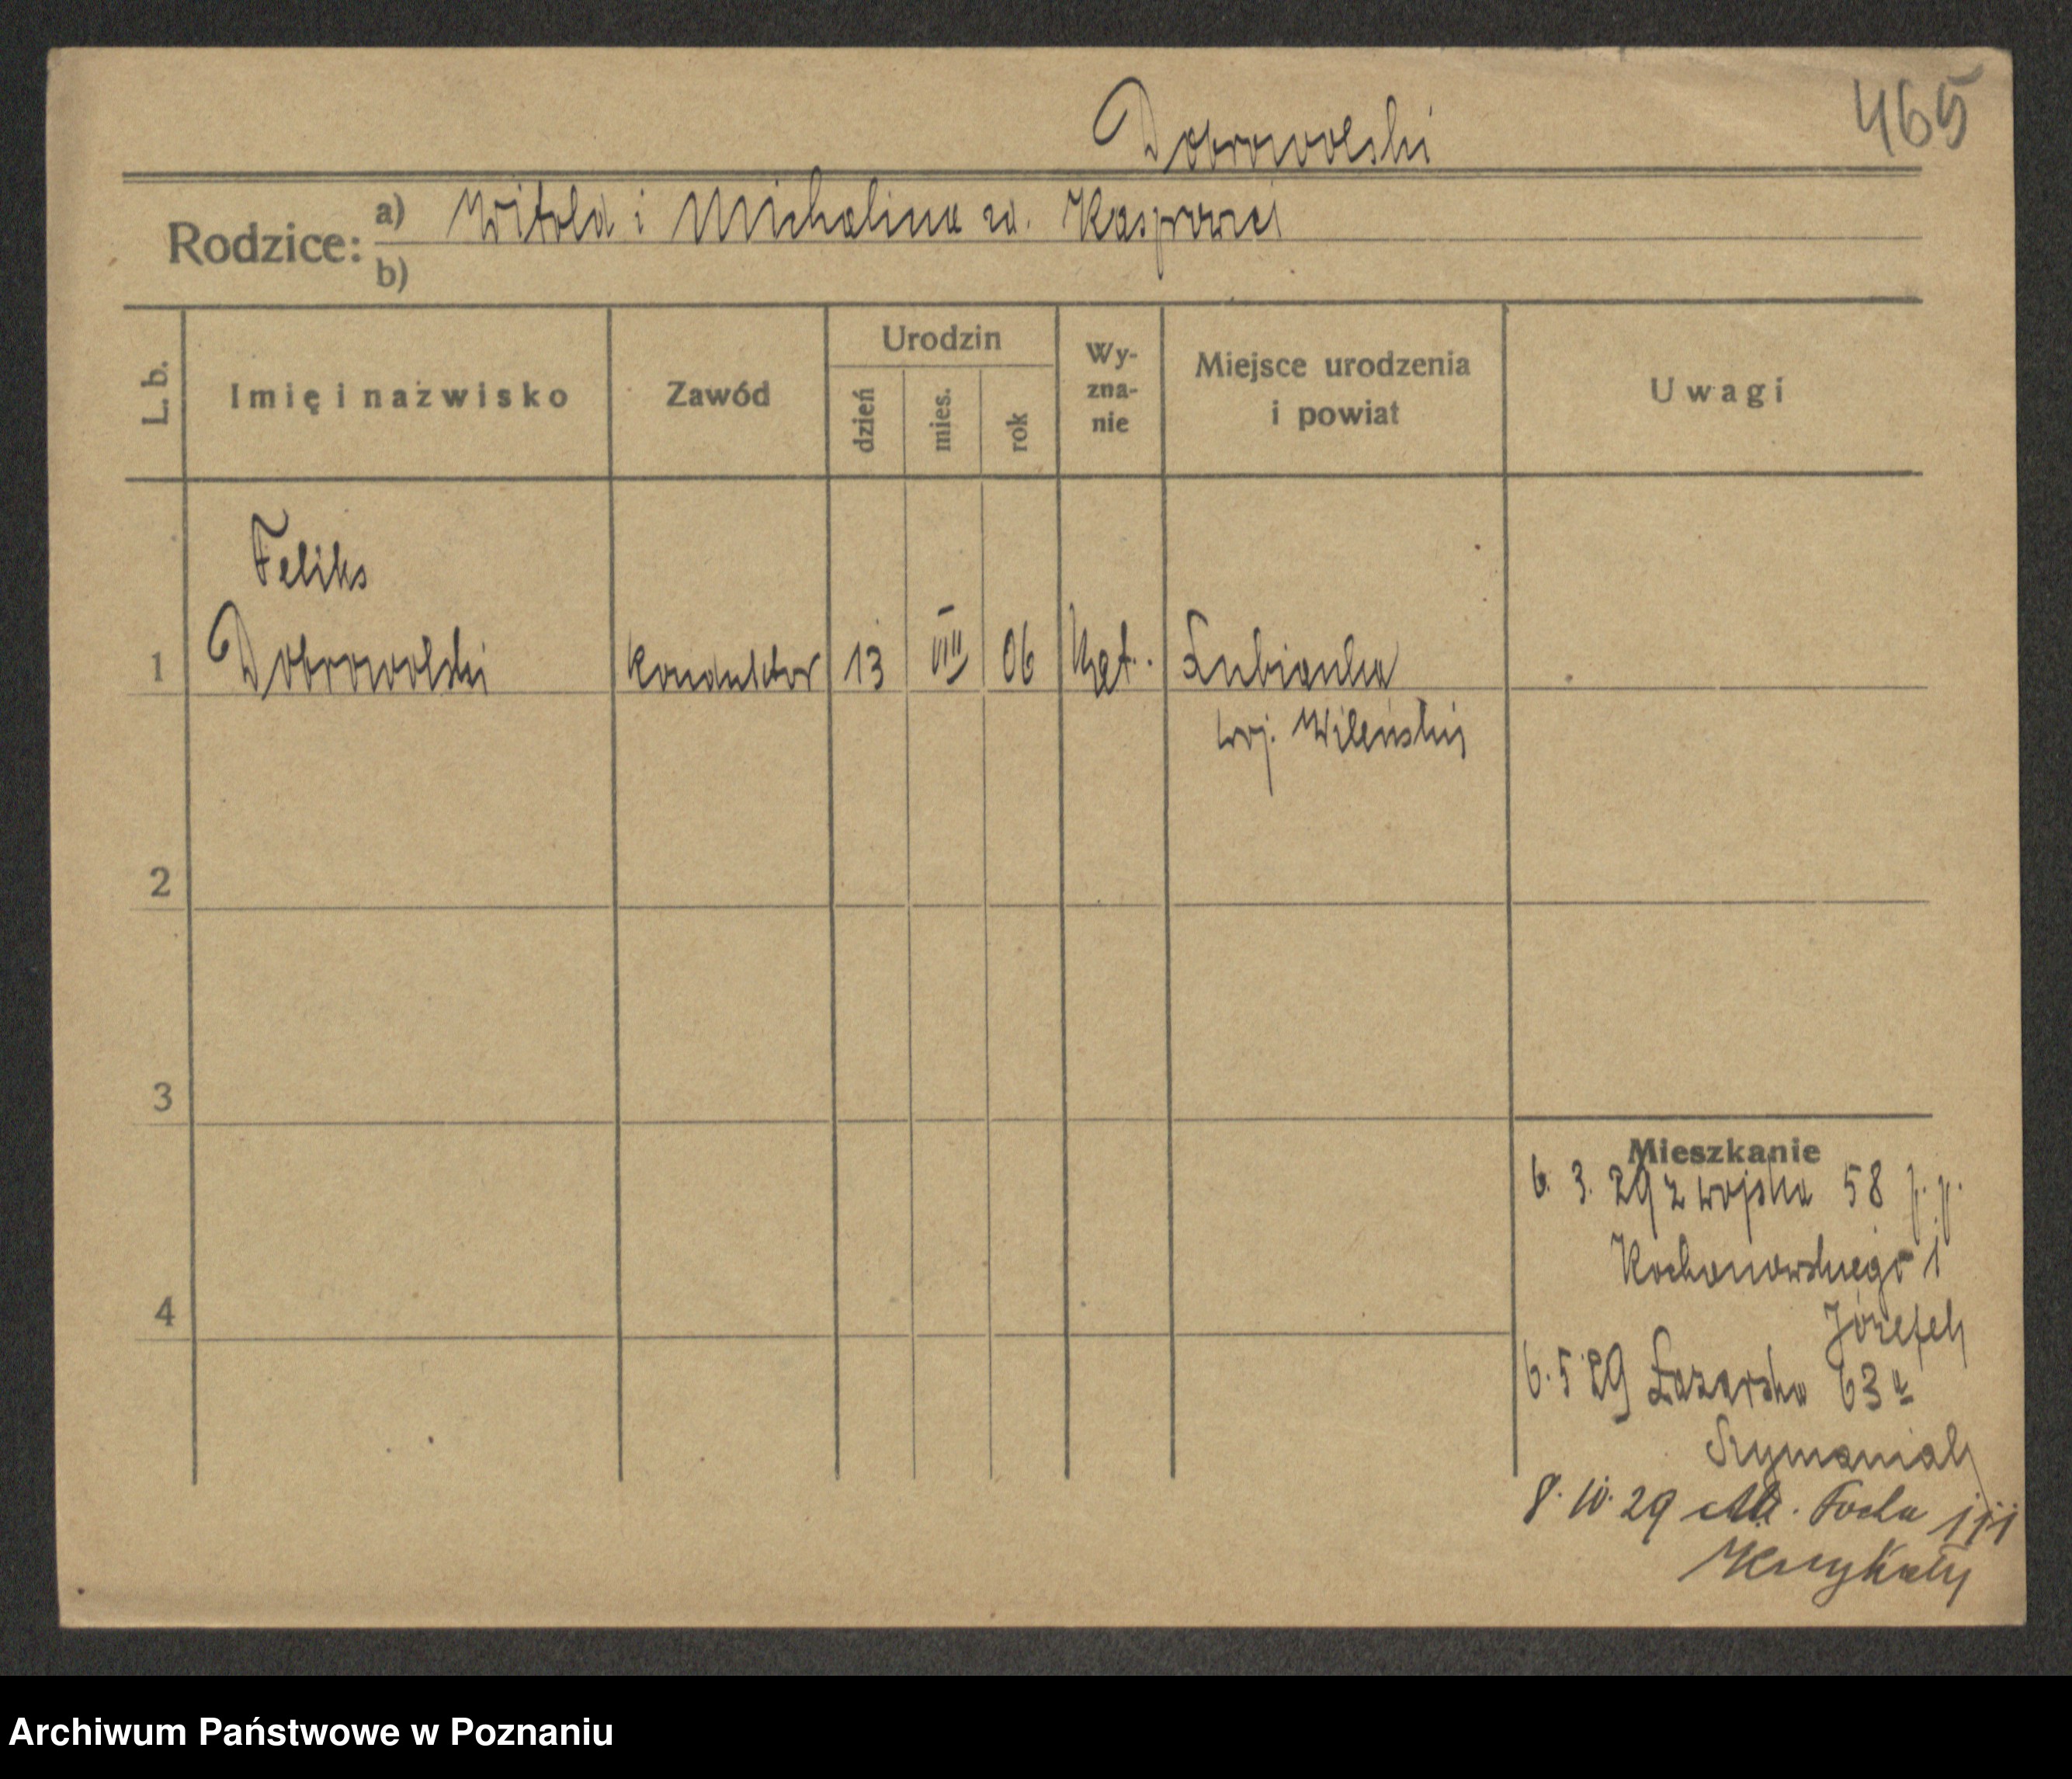 465
Dobrowolski
Rodzice:
a) Witold i Michalina zd.
b)
L. b.
Imię i nazwisko
Zawód
Urodzin
dzień
mies.
rok
Wy-
zna-
nie
Miejsce urodzenia
i powiat
Uwagi
Feliks
1 Dobrowolski konduktor 13 VIII 06 kat. Łubianka
woj. Wileński
2
3
4
Mieszkanie
6. 3. 29 z wojska 58 p. p.
Kochanowskiego 1
Józefek
6. 5 29 Łazarska 63a
Szymaniak
8. 10. 29 Focha
Archiwum Państwowe w Poznaniu